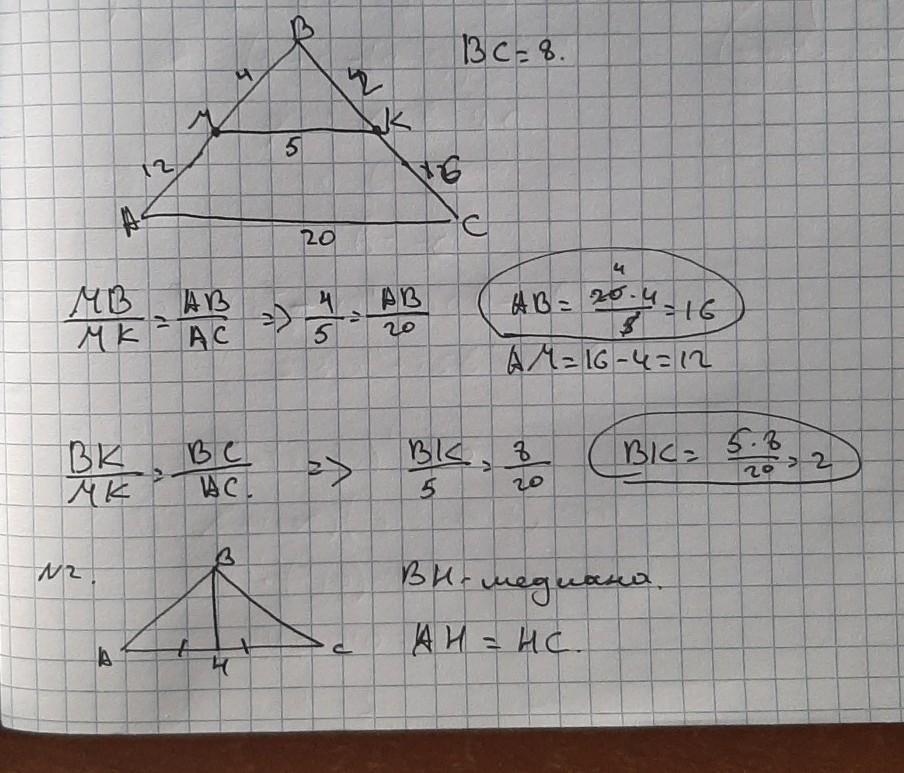 B
BC = 8.
4 2
M K
5
12 6
A C
20
MB/MK = AB/AC => 4/5 = AB/20 AB = 20·4/5 = 16
4
AM = 16 - 4 = 12
BK/MK = BC/AC. => BK/5 = 8/20 BK = 5·8/20 = 2
N2. B BH - медиана.
A H C AH = HC.